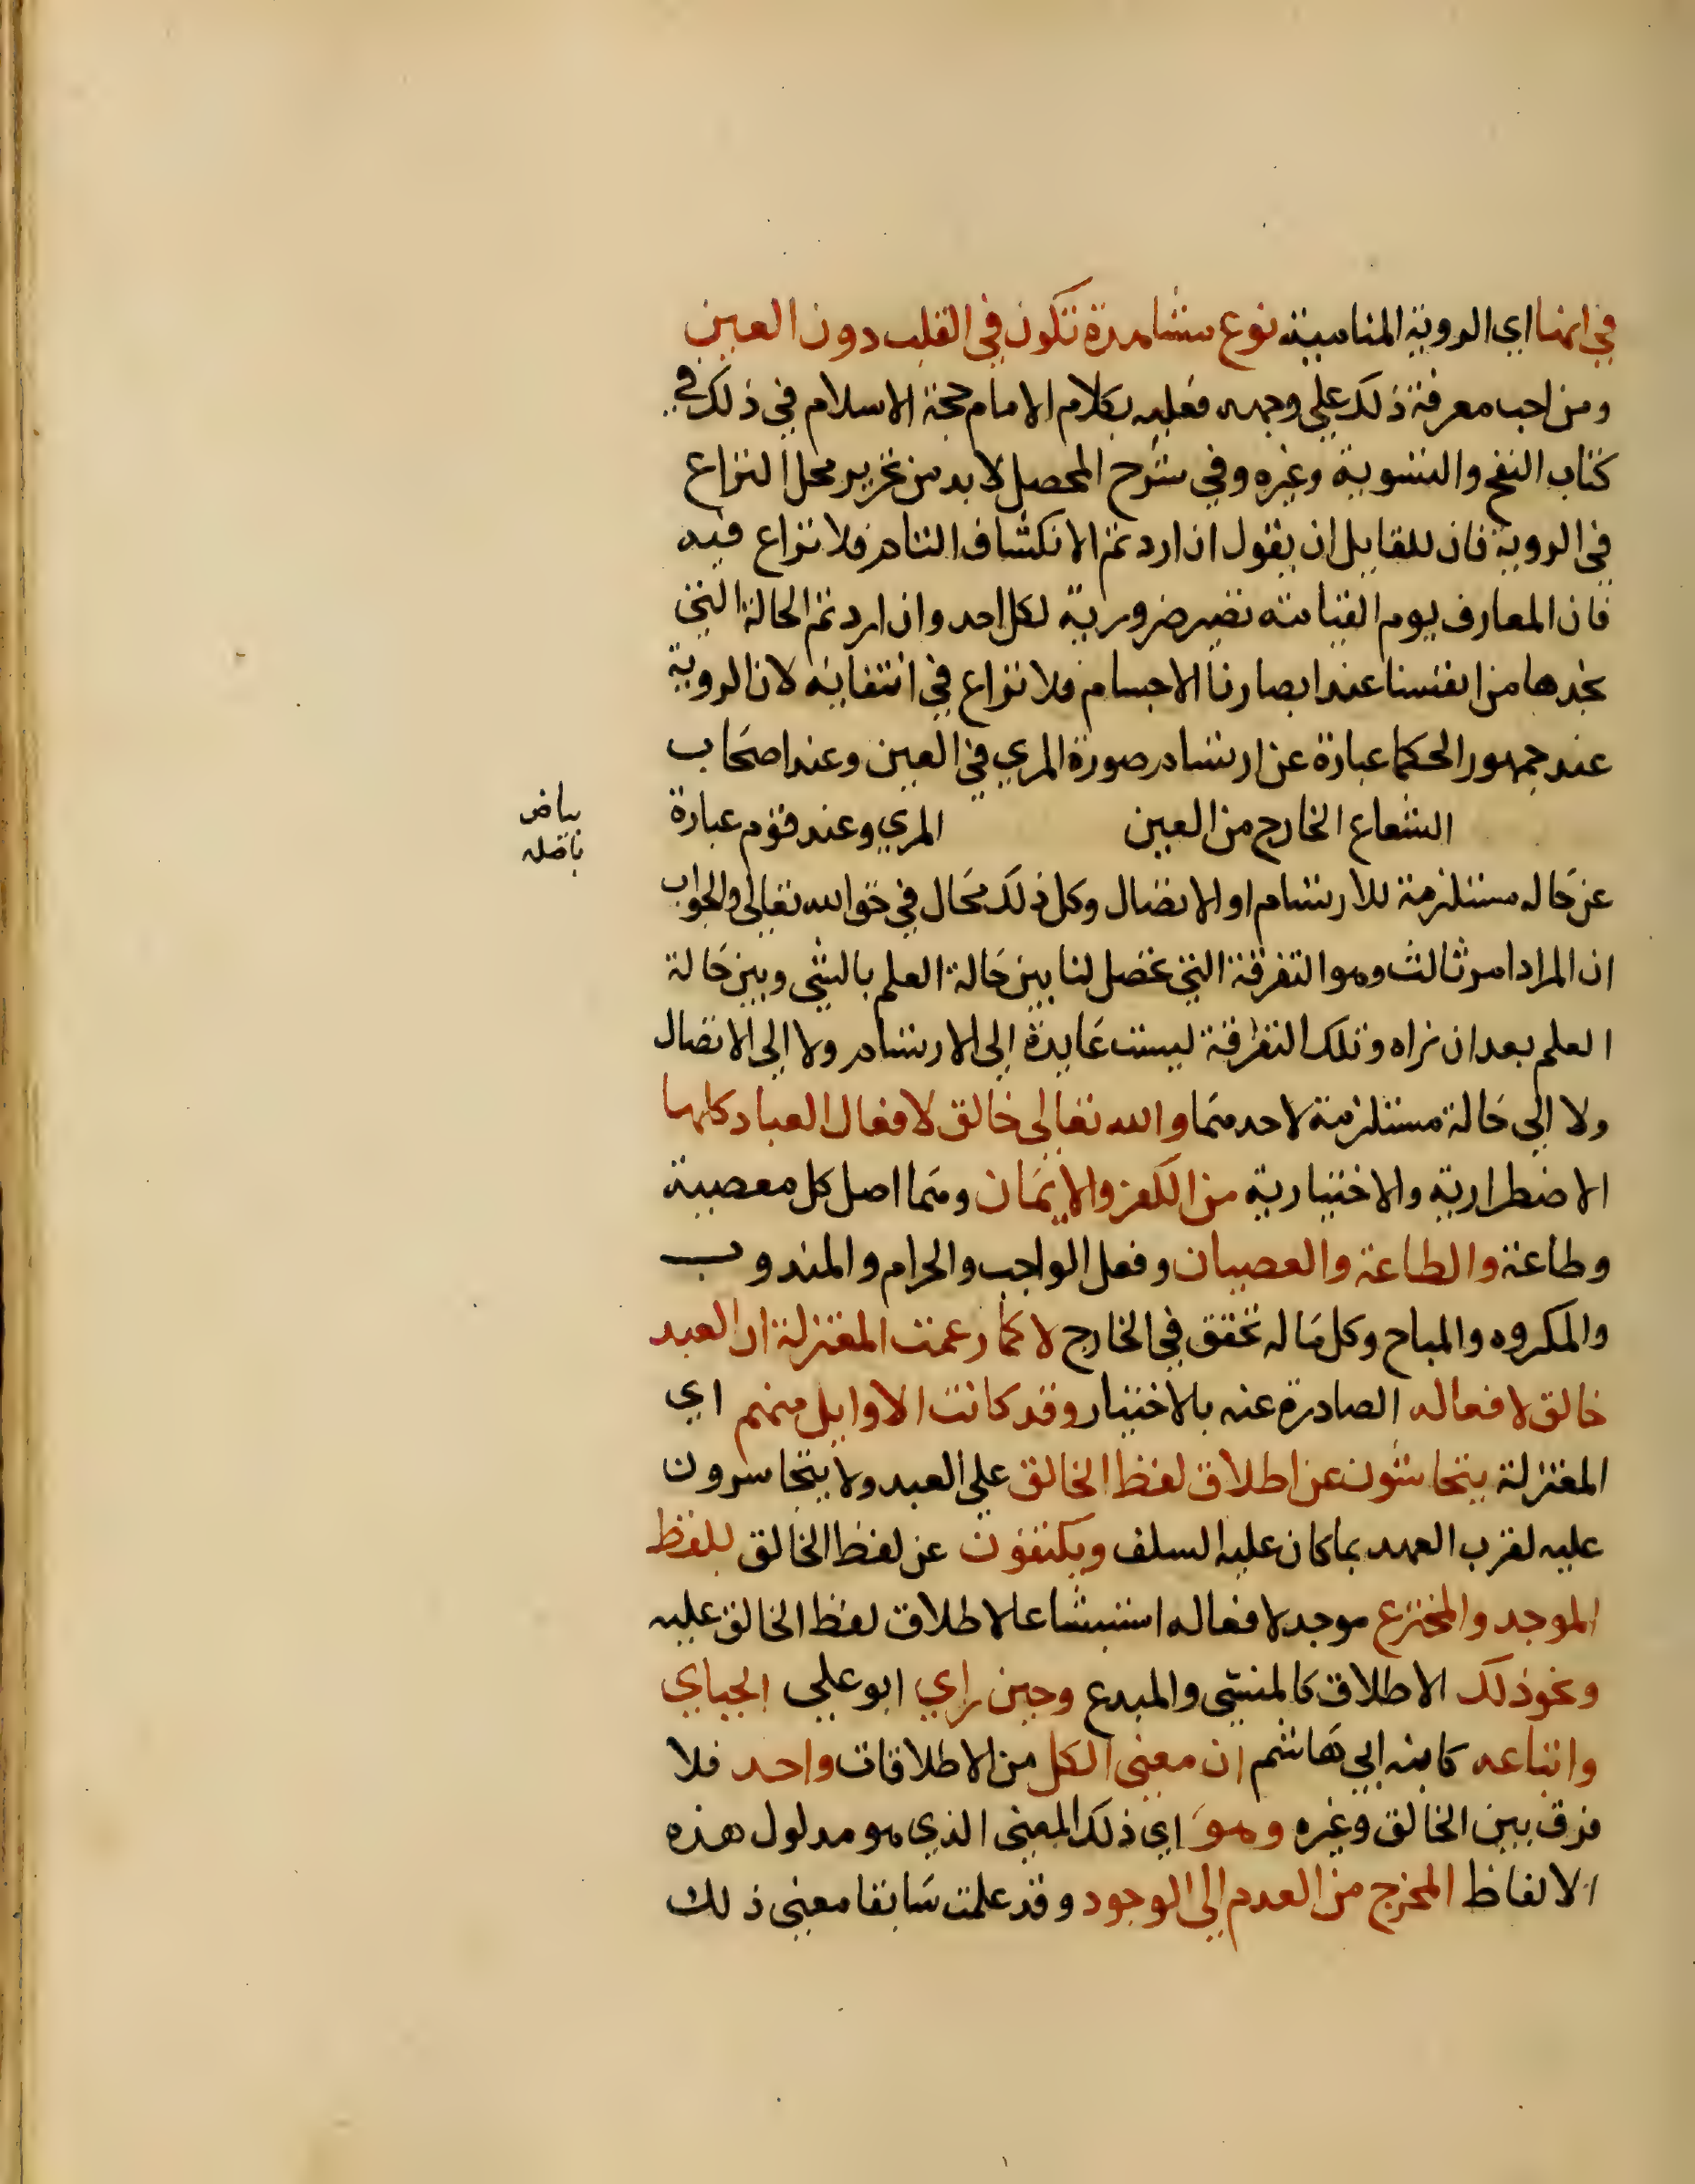 في انها اي الروية المنامية نوع مشاهدة تكون في القلب دون العين
ومن احب معرفة ذلك علي وجهه فعليه بكلام الامام حجة الاسلام في ذلك في
كتاب النفخ والتسوية وغيره وفي شرح المحصل لا بد من تحرير محل النزاع
في الروية فان للقايل ان يقول ان اردتم الانكشاف التام فلا نزاع فيه
فان المعارف يوم القيامة تصير ضرورية لكل احد وان اردتم الحالة التي
نجدها من انفسنا عند ابصارنا الاجسام فلا نزاع في انتفايه لان الروية
عند جمهور الحكما عبارة عن ارتسام صورة المري في العين وعند اصحاب
الشعاع الخارج من العين المري وعند قوم عبارة
بياض
باصله
عن حاله مستلزمة للارتسام او الاتصال وكل ذلك محال في حق الله تعالي والجواب
ان المراد امر ثالث وهو التفرقة التي تحصل لنا بين حالة العلم بالشي وبين حالة
العلم بعد ان نراه وتلك التفرقة ليست عايدة الي الارتسام ولا الي الاتصال
ولا الي حالة مستلزمة لاحدهما والله تعالي خالق لافعال العباد كلها
الاضطرارية والاختيارية من الكفر والايمان وهما اصل كل معصية
وطاعة والطاعة والعصيان وفعل الواجب والحرام والمندوب
والمكروه والمباح وكل ما له تحقق في الخارج لا كما زعمت المعتزلة ان العبد
خالق لافعاله الصادرة عنه بالاختيار وقد كانت الاوايل منهم اي
المعتزلة يتحاشون عن اطلاق لفظ الخالق علي العبد ولا يتجاسرون
عليه لقرب العهد بما كان عليه السلف ويكتفون عن لفظ الخالق بلفظ
الموجد والمخترع موجد لافعاله استبشاعا لاطلاق لفظ الخالق عليه
ونحو ذلك الاطلاق كالمنشي والمبدع وحين راي ابو علي الجباي
واتباعه كابنه ابي هاشم ان معني الكل من الاطلاقات واحد فلا
فرق بين الخالق وغيره وهو اي ذلك المعني الذي هو مدلول هذه
الالفاظ المخرج من العدم الي الوجود وقد علمت سابقا معني ذلك